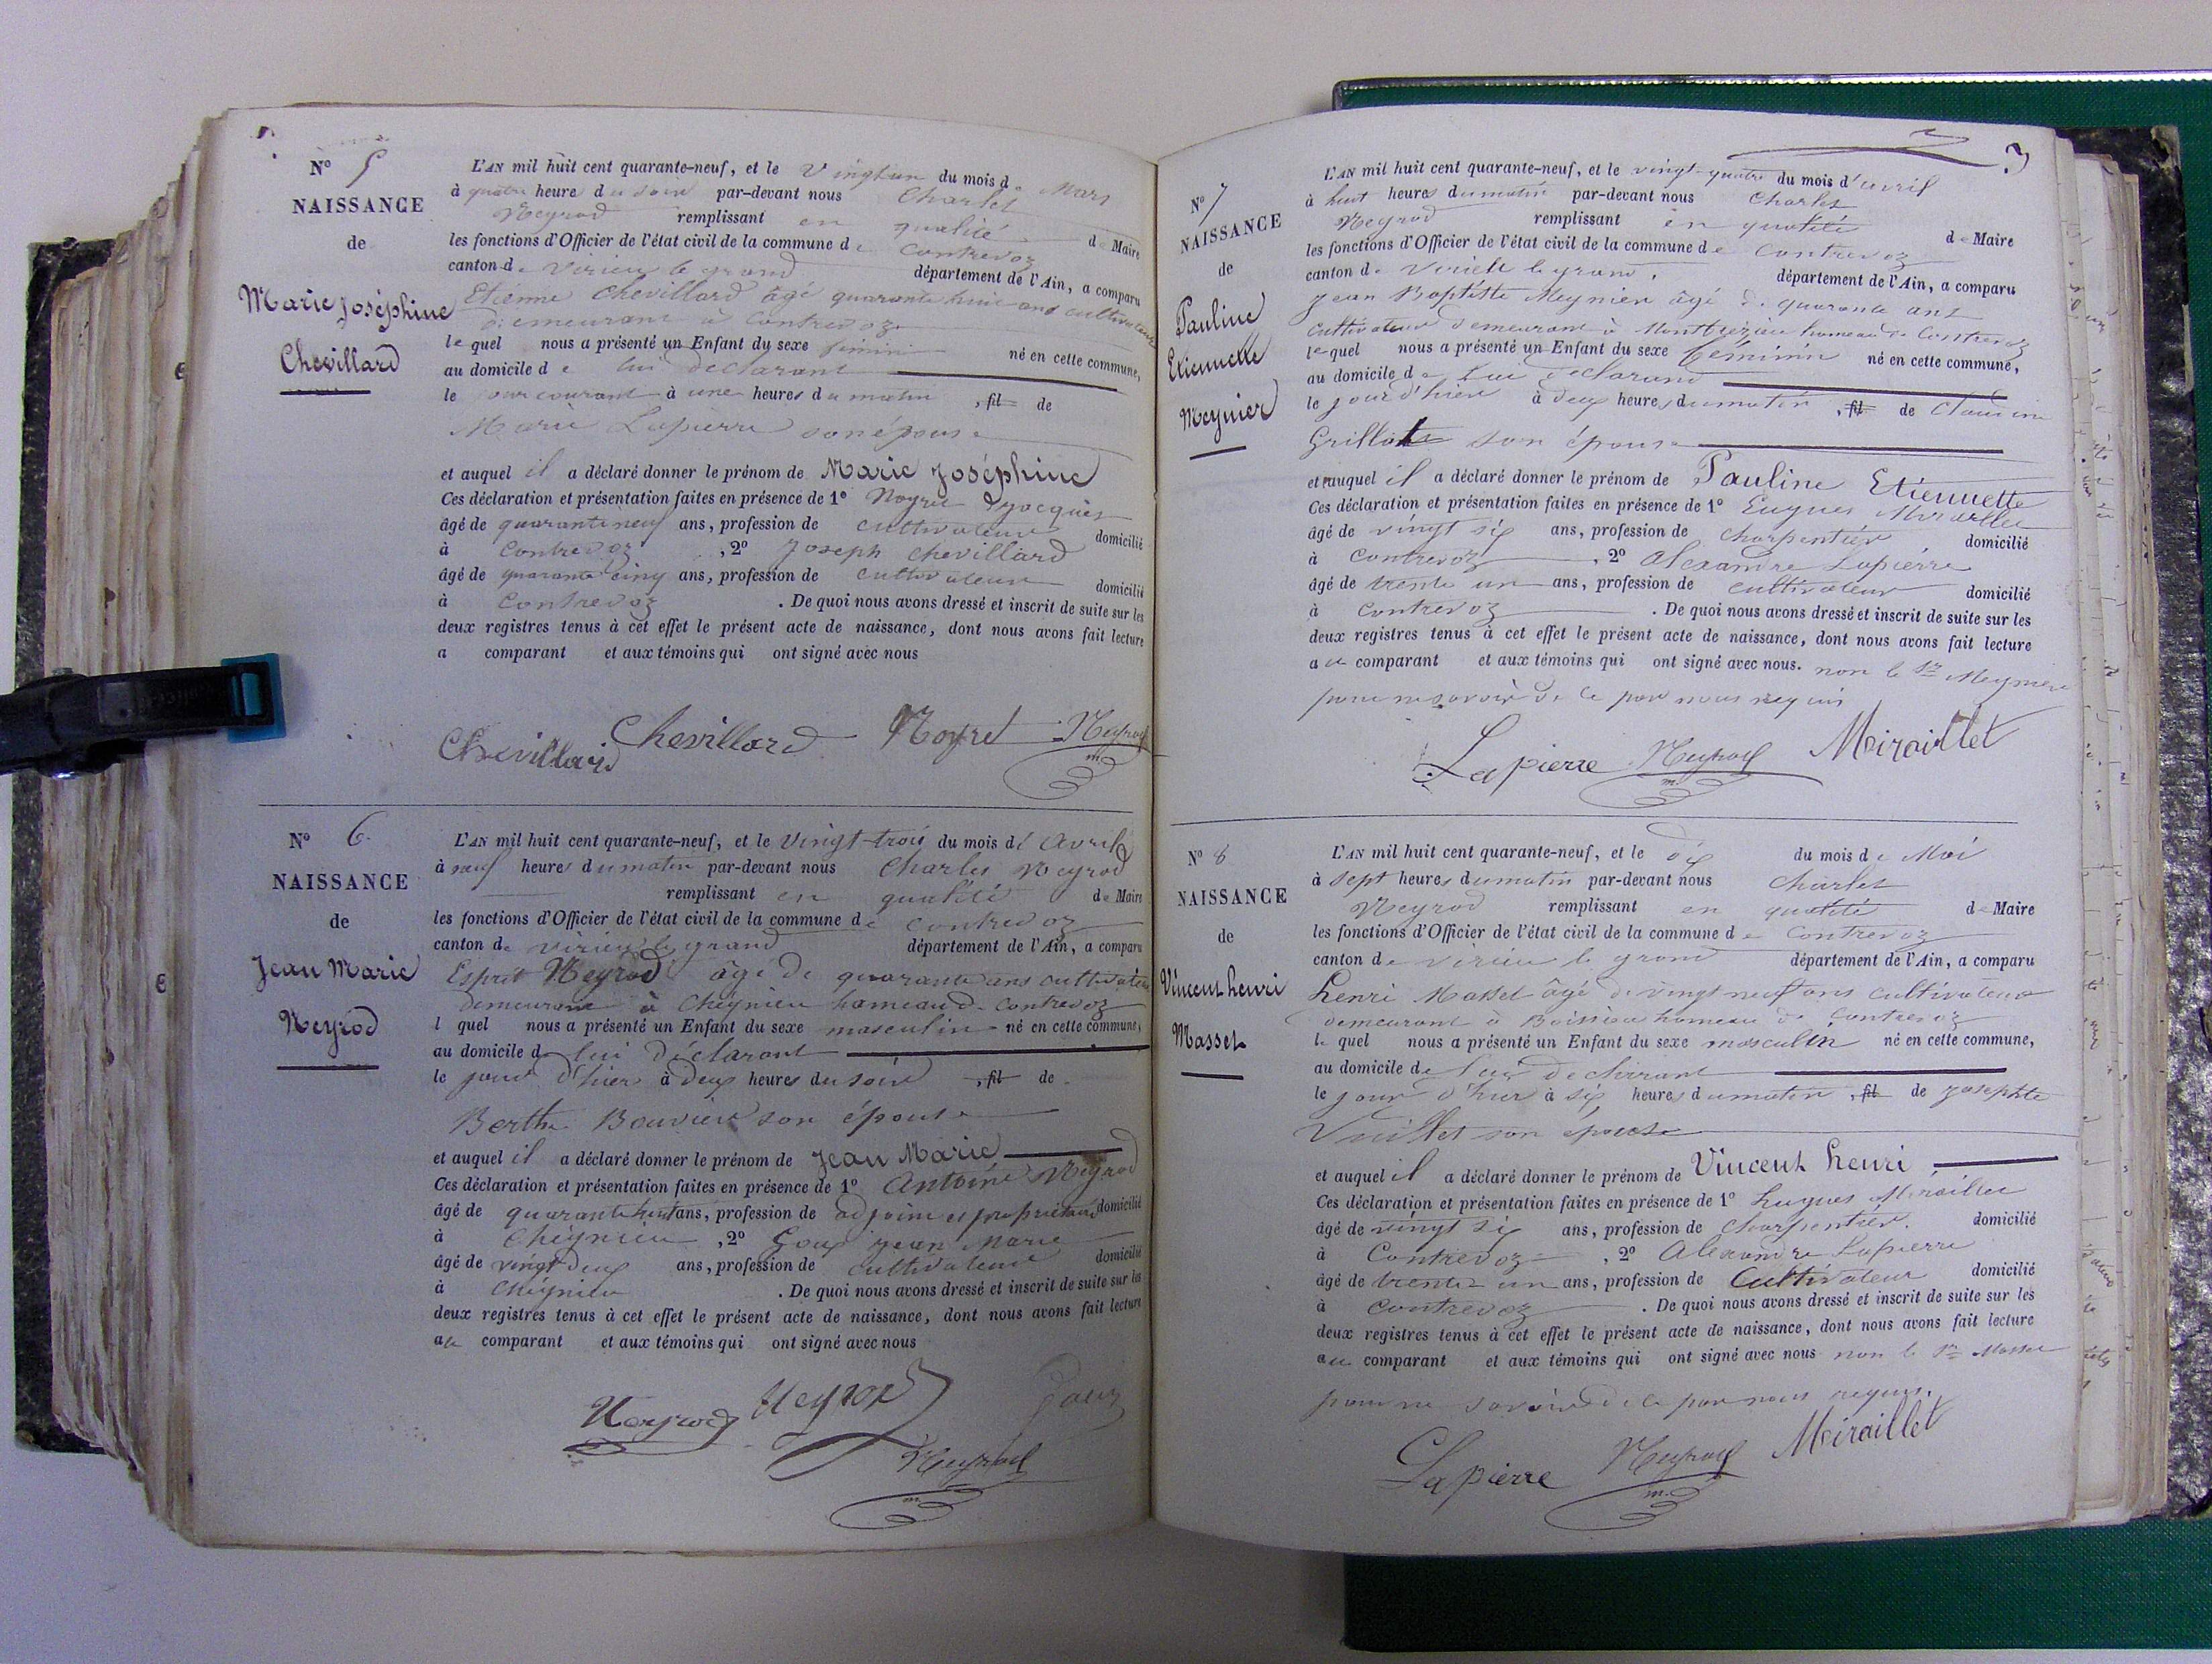 N° 5
NAISSANCE
de
Marie Joséphine
Chevillard
L'AN mil huit cent quarante-neuf, et le Vingt un du mois de Mars
à quatre heures du soir par-devant nous Charles
Neyrod remplissant en qualité de Maire
les fonctions d'Officier de l'état civil de la commune de Contrevoz
canton de Virieu le grand département de l'Ain, a comparu
Etienne Chevillard âgé quarante huit ans cultivateur
demeurant à Contrevoz
le quel nous a présenté un Enfant du sexe féminin né en cette commune,
au domicile de lui déclarant
le jour courant à une heures du matin , fil de
Marie Lapierre son épouse
et auquel il a déclaré donner le prénom de Marie Joséphine
Ces déclaration et présentation faites en présence de 1° Noyret
âgé de quarante neuf ans, profession de cultivateur domicilié
à Contrevoz , 2° Joseph Chevillard
âgé de quarante cinq ans, profession de cultivateur domicilié
à Contrevoz . De quoi nous avons dressé et inscrit de suite sur les
deux registres tenus à cet effet le présent acte de naissance, dont nous avons fait lecture
a comparant et aux témoins qui ont signé avec nous
Chevillard Chevillard Noyret Neyrod
m.
N° 6.
NAISSANCE
de
Jean Marie
Neyrod
L'AN mil huit cent quarante-neuf, et le Vingt-trois du mois d'Avril
à neuf heures du matin par-devant nous Charles Neyrod
remplissant en qualité de Maire
les fonctions d'Officier de l'état civil de la commune de Contrevoz
canton de Virieu le grand département de l'Ain, a comparu
Esprit Neyrod âgé de quarante ans cultivateur
demeurant à Cheignieu hameau de Contrevoz
l quel nous a présenté un Enfant du sexe masculin né en cette commune,
au domicile de lui déclarant
le jour d'hier à deux heures du soir , fil de
Berthe Bouvier son épouse
et auquel il a déclaré donner le prénom de Jean Marie
Ces déclaration et présentation faites en présence de 1° Antoine Neyrod
âgé de quarante huit ans, profession de adjoint et propriétaire domicilié
à Cheignieu , 2° Goux Jean Marie
âgé de vingt deux ans, profession de cultivateur domicilié
à Cheignieu . De quoi nous avons dressé et inscrit de suite sur les
deux registres tenus à cet effet le présent acte de naissance, dont nous avons fait lecture
au comparant et aux témoins qui ont signé avec nous
Neyrod Neyrod Goux
Neyrod
m.
3
N° 7
NAISSANCE
de
Pauline
Etiennette
Meynier
L'AN mil huit cent quarante-neuf, et le vingt-quatre du mois d'avril
à huit heures du matin par-devant nous Charles
Neyrod remplissant en qualité de Maire
les fonctions d'Officier de l'état civil de la commune de Contrevoz
canton de Virieu le grand. département de l'Ain, a comparu
Jean Baptiste Meynier âgé de quarante ans
cultivateur demeurant à hameau de Contrevoz
le quel nous a présenté un Enfant du sexe féminin né en cette commune,
au domicile de lui déclarant
le jour d'hier à deux heures du matin , fil de Claudine
son épouse
et auquel il a déclaré donner le prénom de Pauline Etiennette
Ces déclaration et présentation faites en présence de 1° Eugues Miraillet
âgé de vingt six ans, profession de charpentier domicilié
à Contrevoz , 2° Alexandre Lapierre
âgé de trente un ans, profession de cultivateur domicilié
à Contrevoz . De quoi nous avons dressé et inscrit de suite sur les
deux registres tenus à cet effet le présent acte de naissance, dont nous avons fait lecture
au comparant et aux témoins qui ont signé avec nous. non le Sr Meynier
pour ne savoir de ce par nous requis
Lapierre Neyrod Miraillet
m.
N° 8
NAISSANCE
de
Vincent henri
Masset
L'AN mil huit cent quarante-neuf, et le dix du mois de Mai
à sept heures du matin par-devant nous Charles
Neyrod remplissant en qualité de Maire
les fonctions d'Officier de l'état civil de la commune de Contrevoz
canton de Virieu le grand département de l'Ain, a comparu
henri Masset âgé de vingt neuf ans cultivateur
demeurant à Boissieu hameau de Contrevoz
le quel nous a présenté un Enfant du sexe masculin né en cette commune,
au domicile de lui déclarant
le jour d'hier à six heures du matin , fil de Josephte
Vuillet son épouse
et auquel il a déclaré donner le prénom de Vincent henri
Ces déclaration et présentation faites en présence de 1° hugues Miraillet
âgé de vingt six ans, profession de charpentier. domicilié
à Contrevoz , 2° Alexandre Lapierre
âgé de trente un ans, profession de Cultivateur domicilié
à Contrevoz . De quoi nous avons dressé et inscrit de suite sur les
deux registres tenus à cet effet le présent acte de naissance, dont nous avons fait lecture
au comparant et aux témoins qui ont signé avec nous non le Sr Masset
pour ne savoir de ce par nous requis.
Lapierre Neyrod Miraillet
m.